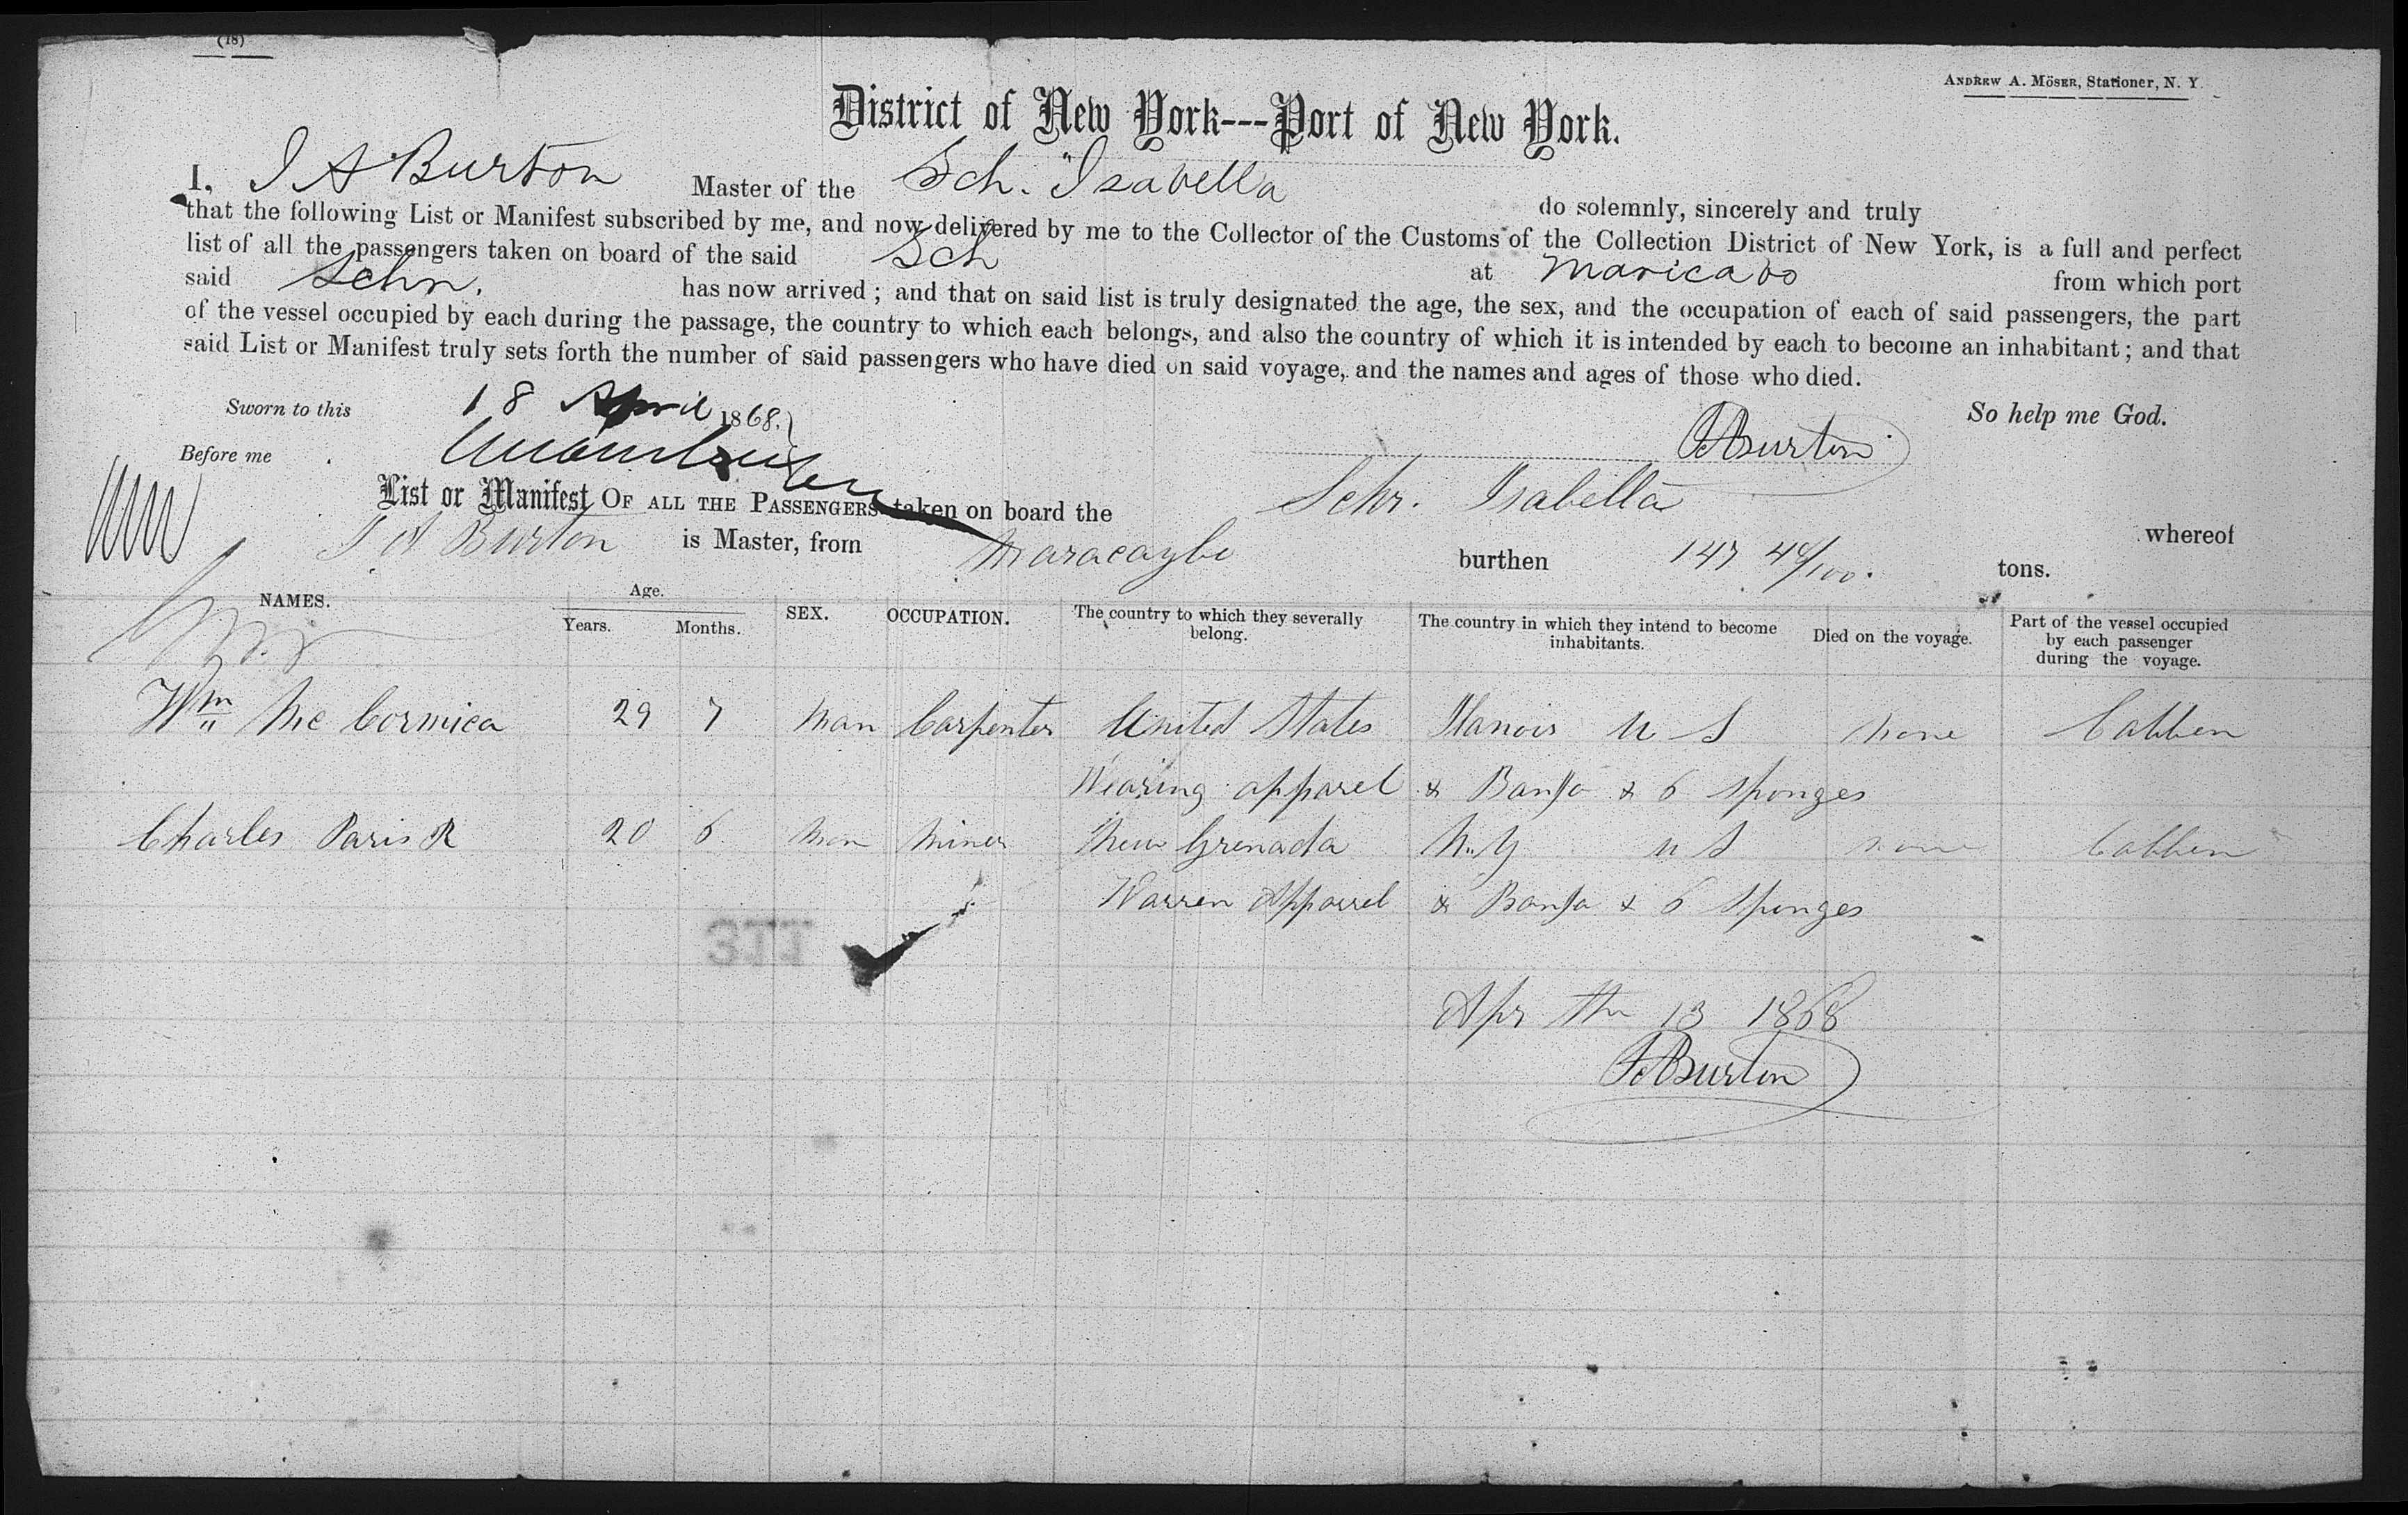 (18)
ANDREW A. MÖSER, Stationer, N. Y.
District of New York---Port of New York.
I, J A Burton Master of the Sch. "Isabella do solemnly, sincerely and truly
that the following List or Manifest subscribed by me, and now delivered by me to the Collector of the Customs of the Collection District of New York, is a full and perfect
list of all the passengers taken on board of the said Sch at Maricabo from which port
said Schr. has now arrived; and that on said list is truly designated the age, the sex, and the occupation of each of said passengers, the part
of the vessel occupied by each during the passage, the country to which each belongs, and also the country of which it is intended by each to become an inhabitant; and that
said List or Manifest truly sets forth the number of said passengers who have died on said voyage, and the names and ages of those who died.
Sworn to this 18 April 1868. So help me God.
Before me J A Burton
List or Manifest OF ALL THE PASSENGERS taken on board the Schr. Isabella whereof
J A Burton is Master, from Maracaybo burthen 147 48/100. tons.
NAMES. Age. Years. Months. SEX. OCCUPATION. The country to which they severally belong. The country in which they intend to become inhabitants. Died on the voyage. Part of the vessel occupied by each passenger during the voyage.
Wm Mc Cormica 29 7 Man Carpenter United States Ilanois U S None Cabben
Wearing apparel & Banjo & 6 Sponges
Charles Paris R 20 6 Man Miner New Grenada N.Y U S None Cabben
Warren Apparel & Banjo & 6 Sponges
311
Apr th 13 1868
J A Burton